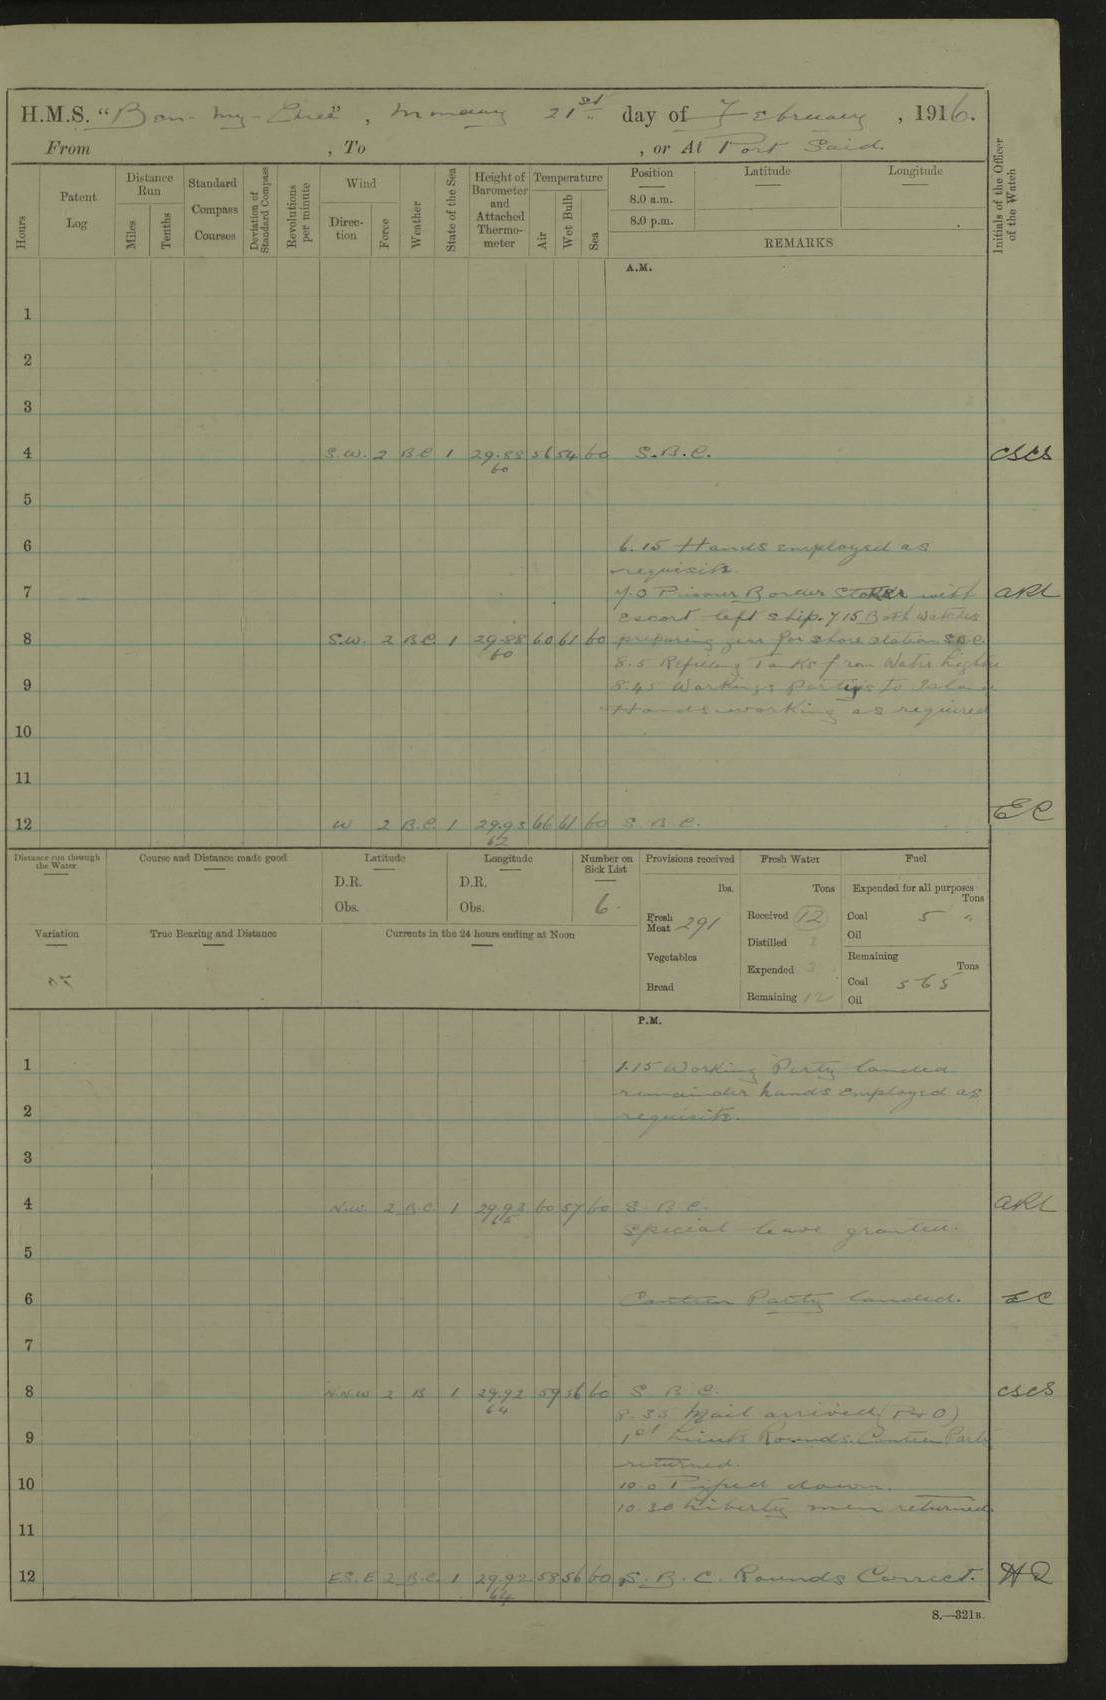 H.M.S. "Ben-my-Chree", Monday 21st day of February, 1916.
From , To , or At Port Said.
Hours
Patent Log
Distance Run
Miles
Tenths
Standard Compass Courses
Deviation of Standard Compass
Revolutions per minute
Wind
Direction
Force
Weather
State of the Sea
Height of Barometer and Attached Thermometer
Temperature
Air
Wet Bulb
Sea
Position
8.0 a.m.
8.0 p.m.
Latitude
Longitude
REMARKS
Initials of the Officer of the Watch
A.M.
1
2
3
4 S.W. 2 B.C 1 29.88 56 54 60 S.B.C. CSCS
60
5
6 6.15 Hands employed as
requisite
7 7.0 Prisoner Stoker with ARL
escort left ship. 7.15 Both watches
8 S.W. 2 B.C 1 29.88 60 61 60 preparing gear for shore station S.B.C.
60
8.5 Refilling Tanks from Water lighter
9 8.45 Workings Partys to Island
Hands working as required
10
11
12 W 2 B.C. 1 29.93 66 61 60 S. B. C. EC
62
Distance run through the Water
Course and Distance made good
Latitude
D.R.
Obs.
Longitude
D.R.
Obs.
Number on Sick List
6.
Provisions received
lbs.
Fresh Meat 291
Vegetables
Bread
Fresh Water
Tons
Received 12
Distilled
Expended
Remaining 12
Fuel
Expended for all purposes
Tons
Coal 5 "
Oil
Remaining
Tons
Coal 565
Oil
Variation
True Bearing and Distance
Currents in the 24 hours ending at Noon
P.M.
1 1.15 Working Party landed
remainder hands employed as
2 requisite.
3
4 N.W. 2 B.C. 1 29.93 60 57 60 S. B. C. ARL
65
Special leave granted.
5
6 Canteen Party landed. EC
7
8 N.N.W 2 B 1 29.92 59 56 60 S. B. C. CSCS
64
8.35 Mail arrived (P&O)
9 Rounds. Canteen Party
returned.
10 10.0 Piped down.
10.30 Liberty men returned
11
12 ES.E 2 B.C. 1 29.92 58 56 60 S. B. C. Rounds Correct.
64
S.—321B.